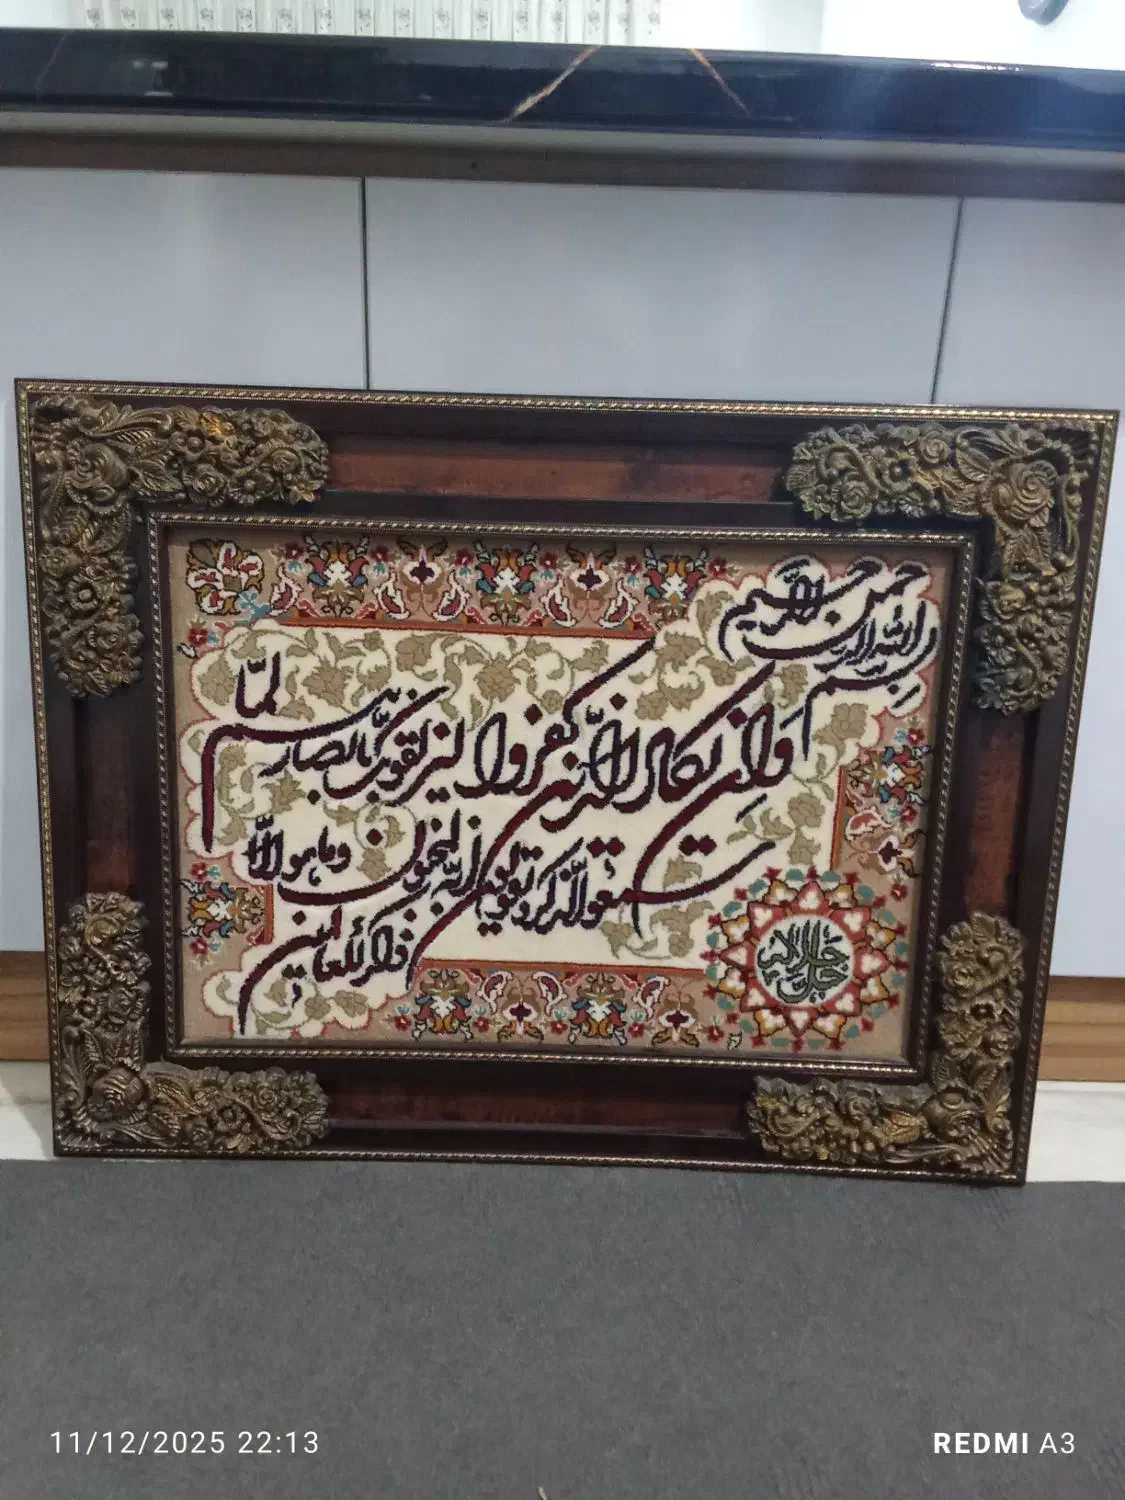 بسم الله الرحمن الرحیم
وان یکاد الذین کفروا لیزلقونک بابصارهم لما
سمعوا الذکر ویقولون انه لمجنون وما هو الا
ذکر للعالمین
جل جلاله
11/12/2025 22:13
REDMI A3